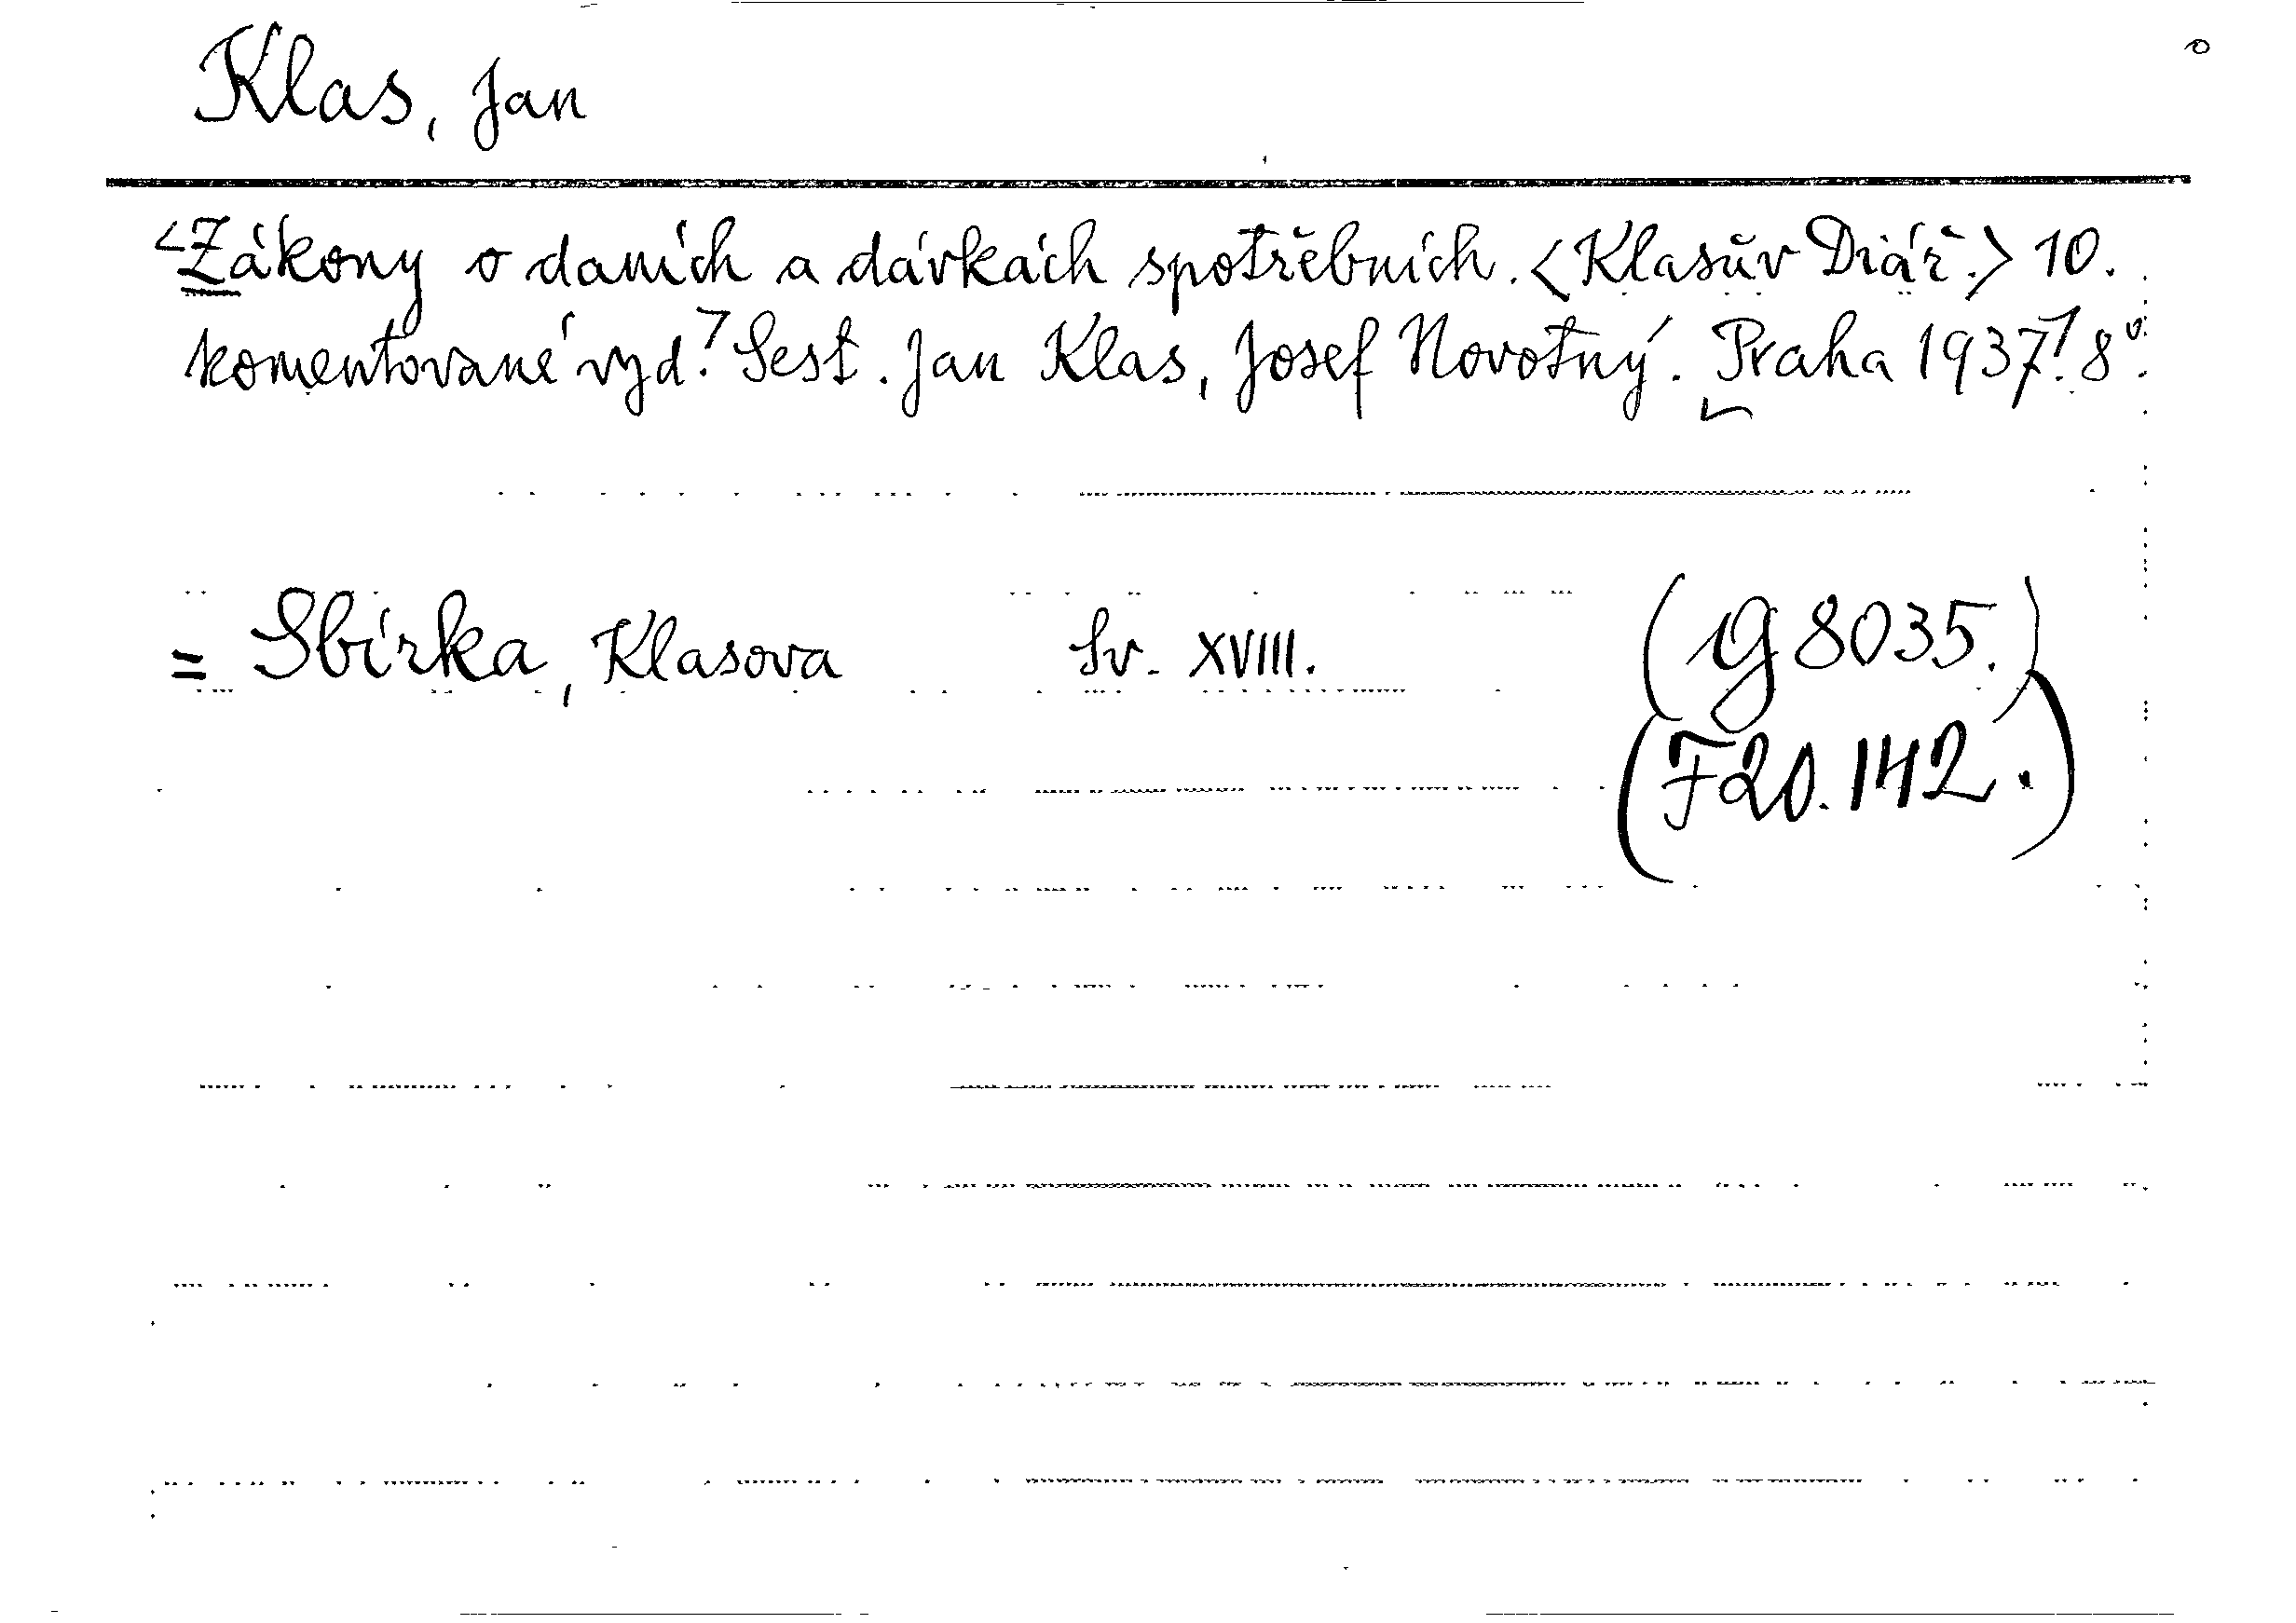 Klas, Jan
Zákony o daních a dávkách spotřebních. <Klasův Diář.> 10.
komentované vyd. Sest. Jan Klas, Josef Novotný. Praha 1937. 8°.
= Sbírka, Klasova Sv. XVIII. (G 8035.)
(F 20.142.)